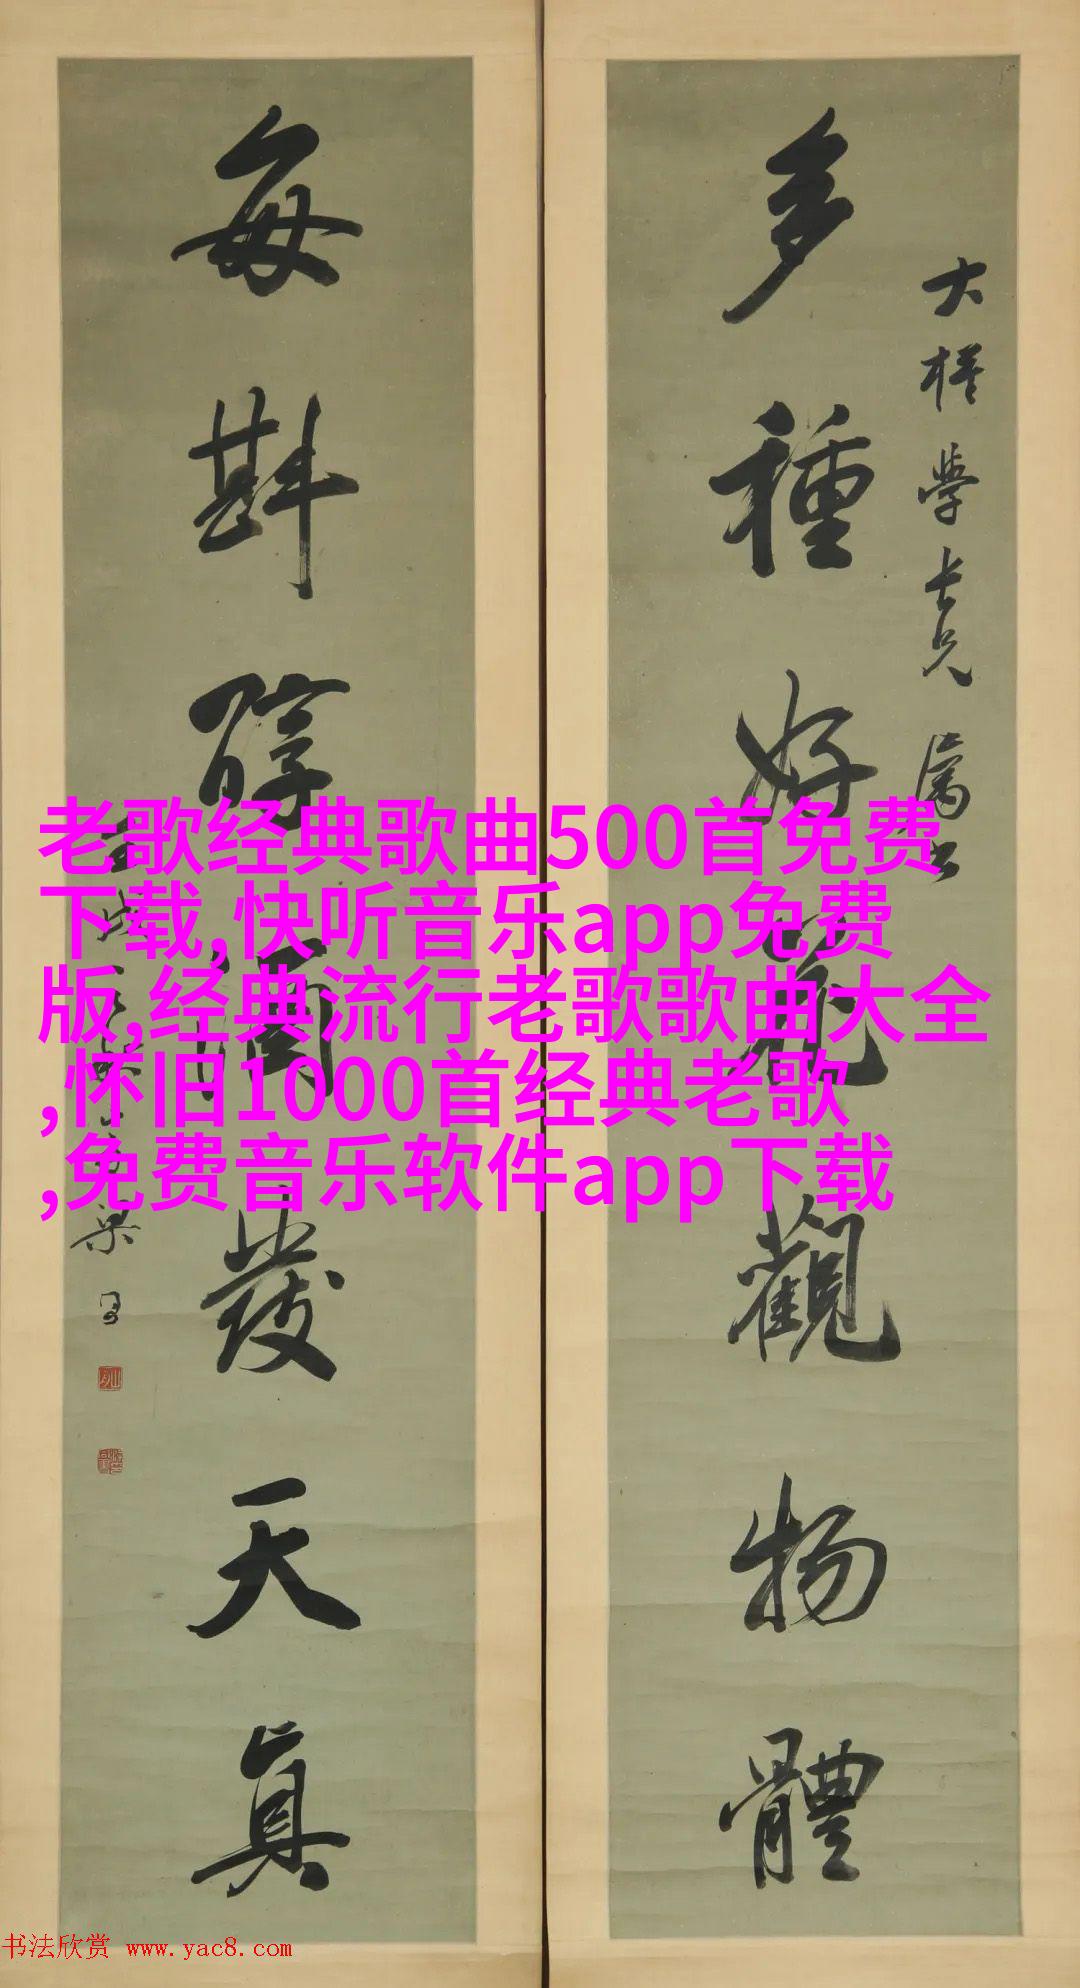 多種好花觀物體
大樁學長兄屬書
每斟醇酒發天真
梁同書
老歌经典歌曲500首免费
下载,快听音乐app免费
版,经典流行老歌歌曲大全
,怀旧1000首经典老歌
,免费音乐软件app下载
书法欣赏 www.yac8.com